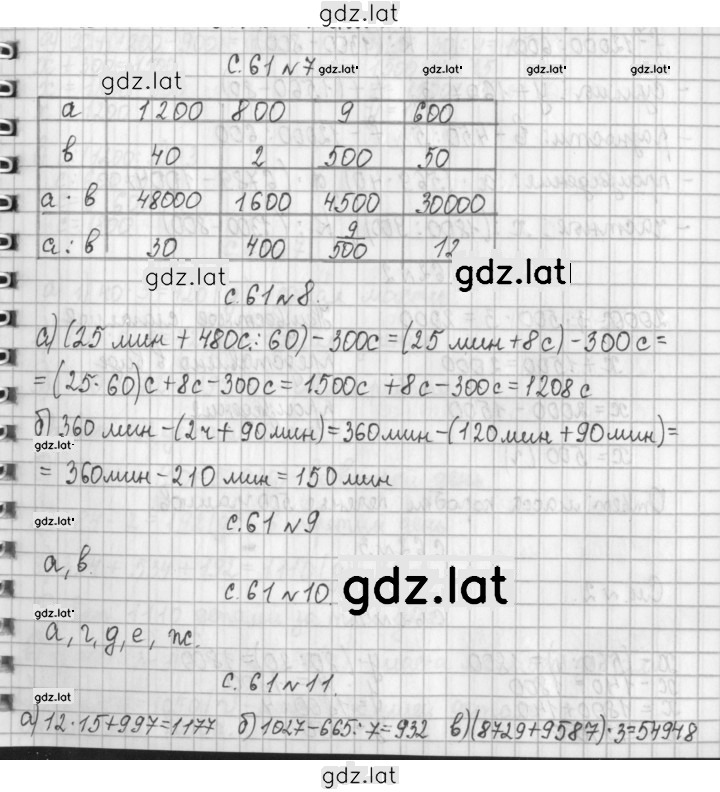 gdz.lat
с. 61 №7 gdz.lat gdz.lat gdz.lat gdz.lat
gdz.lat
а 1200 800 9 600
в 40 2 500 50
а · в 48000 1600 4500 30000
а : в 30 400 9/500 12
gdz.lat gdz.lat
с. 61 №8.
а) (25 мин + 480с : 60) - 300с = (25 мин + 8с) - 300с =
= (25 · 60)с + 8с - 300с = 1500с + 8с - 300с = 1208с
б) 360 мин - (2ч + 90мин) = 360мин - (120мин + 90мин) =
gdz.lat
= 360мин - 210 мин = 150 мин
gdz.lat с. 61 №9
а, в.
с. 61 №10. gdz.lat
gdz.lat
а, г, д, е, ж.
с. 61 №11.
gdz.lat
а) 12 · 15 + 997 = 1177 б) 1027 - 665 : 7 = 932 в) (8729 + 9587) · 3 = 54948
gdz.lat